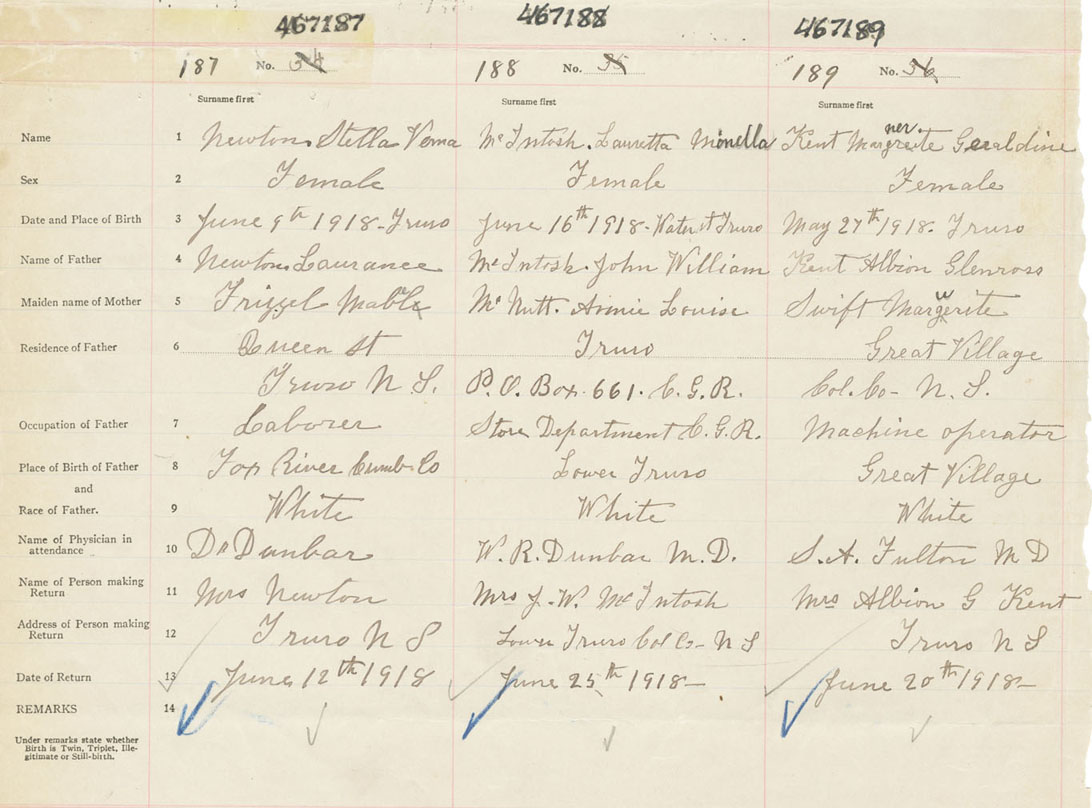 467187 467188 467189
187 No. 34 188 No. 35 189 No. 36
Surname first Surname first Surname first
ner.
Name 1 Newton Stella Verna McIntosh. Lauretta Minella Kent Margreite Geraldine
Sex 2 Female Female Female
Date and Place of Birth 3 June 9th 1918-Truro June 16th 1918-Water st Truro May 27th 1918. Truro
Name of Father 4 Newton Laurance McIntosh. John William Kent Albion Glenross
Maiden name of Mother 5 Frizzel Mable McNutt. Annie Louise Swift Margerite
Residence of Father 6 Queen St Truro Great Village
Truro N S. P.O. Box. 661. C.G.R. Col. Co- N. S.
Occupation of Father 7 Laborer Store Department C.G.R. Machine operator
Place of Birth of Father 8 Fox River Cumb Co Lower Truro Great Village
and
Race of Father. 9 White White White
Name of Physician in
attendance 10 Dr Dunbar W.R. Dunbar M.D. S.A. Fulton M D
Name of Person making
Return 11 Mrs Newton Mrs J. W. McIntosh Mrs Albion G Kent
Address of Person making
Return 12 Truro N S Lower Truro Col Co- N S Truro N S
Date of Return 13 June 12th 1918 June 25th 1918- June 20th 1918-
REMARKS 14
Under remarks state whether
Birth is Twin, Triplet, Ille-
gitimate or Still-birth.